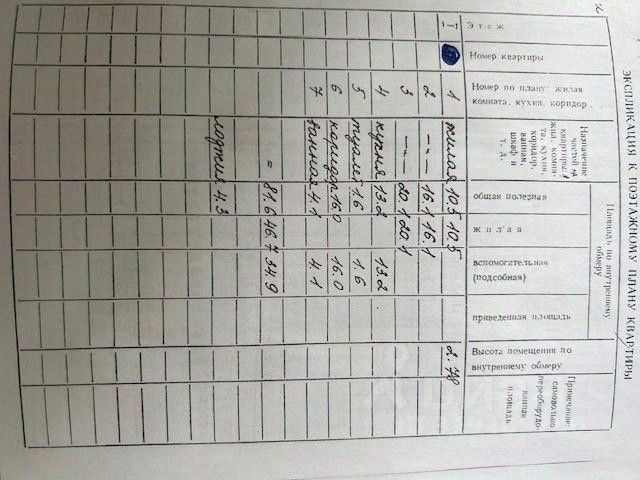 ЭКСПЛИКАЦИЯ К ПОЭТАЖНОМУ ПЛАНУ КВАРТИРЫ
Этаж
Номер квартиры
Номер по плану: жилая
комната, кухня, коридор.
Назначение
частей
квартиры:
жил. комна-
та, кухня,
коридор,
ванная,
шкаф и
т. д.
Площадь по внутреннему
обмеру
общая полезная
жилая
вспомогательная
(подсобная)
приведенная площадь
Высота помещения по
внутреннему обмеру
Примечание:
самовольно
переоборудо-
ванная
площадь
1 жилая 10.5 10.5 2.78
2 —"— 16.1 16.1
3 —"— 20.1 20.1
4 кухня 13.2 13.2
5 туалет 1.6 1.6
6 коридор 16.0 16.0
7 ванная 4.1 4.1
= 81.6 46.7 34.9
лоджия 4.3